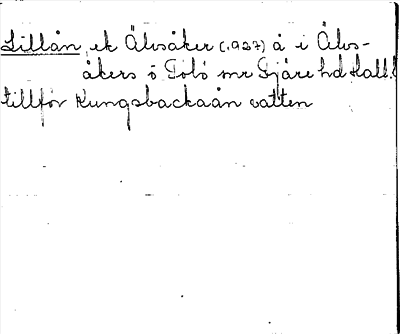 Lillån, ek Älvsåker (1927) å i Älvs-
åkers o Tölö snr Fjäre hd Hall.l
tillför Kungsbackaån vatten